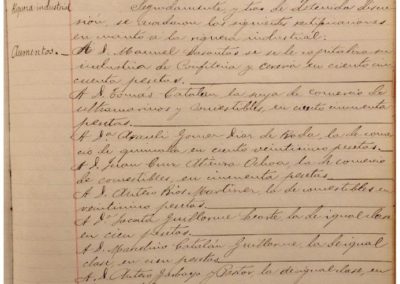 Riqueza industrial
Seguidamente, y tras de detenida discu-
sión, se acordaron las siguientes rectificaciones
en cuanto a la riqueza industrial:
Aumentos.—
A D. Manuel se le capitaliza su
industria de Confitería y cerería en ciento cin-
cuenta pesetas.
A D. Tomás Catalán la suya de comercio de
ultramarinos y comestibles, en ciento cincuenta
pesetas.
A Dª Araceli Gómez Díaz de Roda, la de comer-
cio de quincalla en ciento veinticinco pesetas.
A D. Juan Cruz Ochoa, la de comercio
de comestibles, en cincuenta pesetas.
A D. Arturo Ríos Martínez, la de comestibles en
veinticinco pesetas.
A Dª Guillorme la de igual clase
en cien pesetas.
A D. Catalán Guillorme, la de igual
clase, en cien pesetas.
A D. Arturo y la de igual clase, en